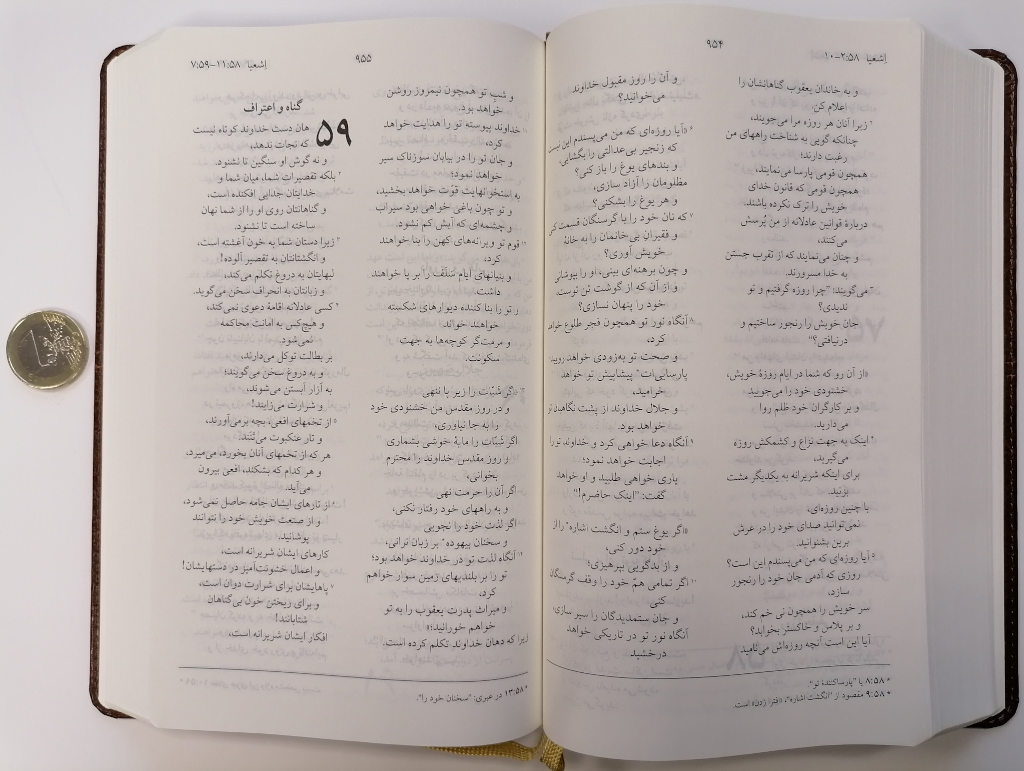 اِشعیا ۲:۵۸-۱۰
۹۵۴
و به خاندان یعقوب گناهانشان را
اعلام کن.
۲ زیرا آنان هر روزه مرا می‌جویند،
چنانکه گویی به شناخت راههای من
رغبت دارند؛
همچون قومی پارسا می‌نمایند،
همچون قومی که قانون خدای
خویش را ترک نکرده باشند.
دربارهٔ قوانین عادلانه از من پُرسش
می‌کنند،
و چنان می‌نمایند که از تقرب جستن
به خدا مسرورند.
۳ می‌گویند: ”چرا روزه گرفتیم و تو
ندیدی؟
جان خویش را رنجور ساختیم و
درنیافتی؟“
«از آن رو که شما در ایام روزهٔ خویش،
خشنودی خود را می‌جویید
و بر کارگران خود ظلم روا
می‌دارید.
۴ اینک به جهت نزاع و کشمکش روزه
می‌گیرید،
برای اینکه شریرانه به یکدیگر مشت
بزنید.
با چنین روزه‌ای،
نمی‌توانید صدای خود را در عرش
برین بشنوانید.
۵ آیا روزه‌ای که من می‌پسندم این است؟
روزی که آدمی جان خود را رنجور
سازد،
سر خویش را همچون نی خم کند،
و بر پلاس و خاکستر بخوابد؟
آیا این است آنچه روزه‌اش می‌نامید
و آن را روز مقبول خداوند
می‌خوانید؟
۶ «آیا روزه‌ای که من می‌پسندم این نیست
که زنجیر بی‌عدالتی را بگشایی،
و بندهای یوغ را باز کنی؟
مظلومان را آزاد سازی،
و هر یوغ را بشکنی؟
۷ که نان خود را با گرسنگان قسمت کنی
و فقیرانِ بی‌خانمان را به خانهٔ
خویش آوری؟
و چون برهنه‌ای بینی، او را بپوشانی
و از آن که از گوشت تن توست،
خود را پنهان نسازی؟
۸ آنگاه نور تو همچون فجر طلوع خواهد
کرد،
و صحت تو به‌زودی خواهد رویید؛
پارسایی‌ات* پیشاپیش تو خواهد
خرامید،
و جلال خداوند از پشت نگاهبان تو
خواهد بود.
۹ آنگاه دعا خواهی کرد و خداوند تو را
اجابت خواهد نمود؛
یاری خواهی طلبید و او خواهد
گفت: ”اینک حاضرم!“
«اگر یوغ ستم و انگشت اشاره* را از
خود دور کنی،
و از بدگویی بپرهیزی؛
۱۰ اگر تمامی همّ خود را وقف گرسنگان
کنی
و جان ستمدیدگان را سیر سازی،
آنگاه نور تو در تاریکی خواهد
درخشید
* ۸:۵۸ یا ”پارساکنندهٔ تو“.
* ۹:۵۸ مقصود از ”انگشت اشاره“، «افترا زدن» است.
۹۵۵
اِشعیا ۱۱:۵۸-۷:۵۹
و شبِ تو همچون نیمروز روشن
خواهد بود.
۱۱ خداوند پیوسته تو را هدایت خواهد
کرد،
و جان تو را در بیابان سوزناک سیر
خواهد نمود؛
به استخوانهایت قوّت خواهد بخشید،
و تو چون باغی خواهی بود سیراب
و چشمه‌ای که آبش کم نشود.
۱۲ قوم تو ویرانه‌های کهن را بنا خواهند
کرد،
و بنیانهای ایام سَلَف را بر پا خواهند
داشت.
و تو را بنا کننده دیوارهای شکسته
خواهند خواند،
و مرمت‌گر کوچه‌ها به جهت
سکونت.
۱۳ «اگر شَبّات را زیر پا ننهی
و در روز مقدس من خشنودی خود
را به جا نیاوری،
اگر شَبّات را مایهٔ خوشی بشماری
و روز مقدس خداوند را محترم
بخوانی،
اگر آن را حرمت نهی
و به راههای خود رفتار نکنی،
اگر لذت خود را نجویی
و سخنان بیهوده* بر زبان نرانی،
۱۴ آنگاه لذت تو در خداوند خواهد بود؛
تو را بر بلندیهای زمین سوار خواهم
کرد،
و میراث پدرت یعقوب را به تو
خواهم خورانید؛»
زیرا که دهان خداوند تکلم کرده است.
گناه و اعتراف
۵۹
هان دست خداوند کوتاه نیست
که نجات ندهد،
و نه گوش او سنگین تا نشنود.
۲ بلکه تقصیرات شما، میان شما و
خدایتان جدایی افکنده است،
و گناهانتان روی او را از شما نهان
ساخته است تا نشنود.
۳ زیرا دستان شما به خون آغشته است،
و انگشتانتان به تقصیر آلوده!
لبهایتان به دروغ تکلم می‌کند،
و زبانتان به انحراف سخن می‌گوید.
۴ کسی عادلانه اقامهٔ دعوی نمی‌کند،
و هیچ‌کس به امانت محاکمه
نمی‌شود.
بر بطالت توکل می‌دارند،
و به دروغ سخن می‌گویند؛
به آزار آبستن می‌شوند،
و شرارت می‌زایند!
۵ از تخمهای افعی، بچه برمی‌آورند،
و تار عنکبوت می‌تَنَند.
هر که از تخمهای آنان بخورد، می‌میرد،
و هر کدام که بشکند، افعی بیرون
می‌آید.
۶ از تارهای ایشان جامه حاصل نمی‌شود،
و از صنعت خویش خود را نتوانند
پوشانید.
کارهای ایشان شریرانه است،
و اعمال خشونت‌آمیز در دستهایشان!
۷ پاهایشان برای شرارت دوان است،
و برای ریختن خون بی‌گناهان
شتابانند!
افکار ایشان شریرانه است،
* ۱۳:۵۸ در عبری: ”سخنان خود را“.